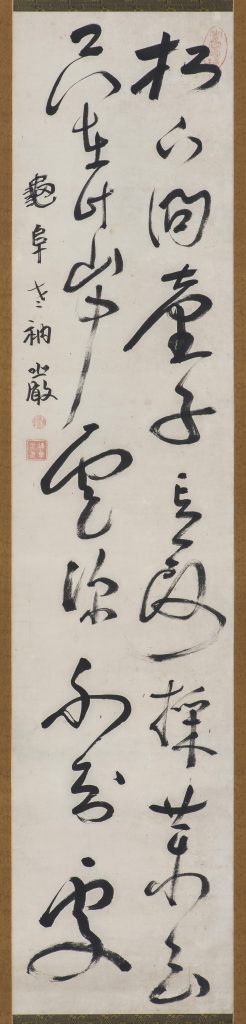 松下問童子言師採藥去
只在此山中雲深不知處
龜阜老衲